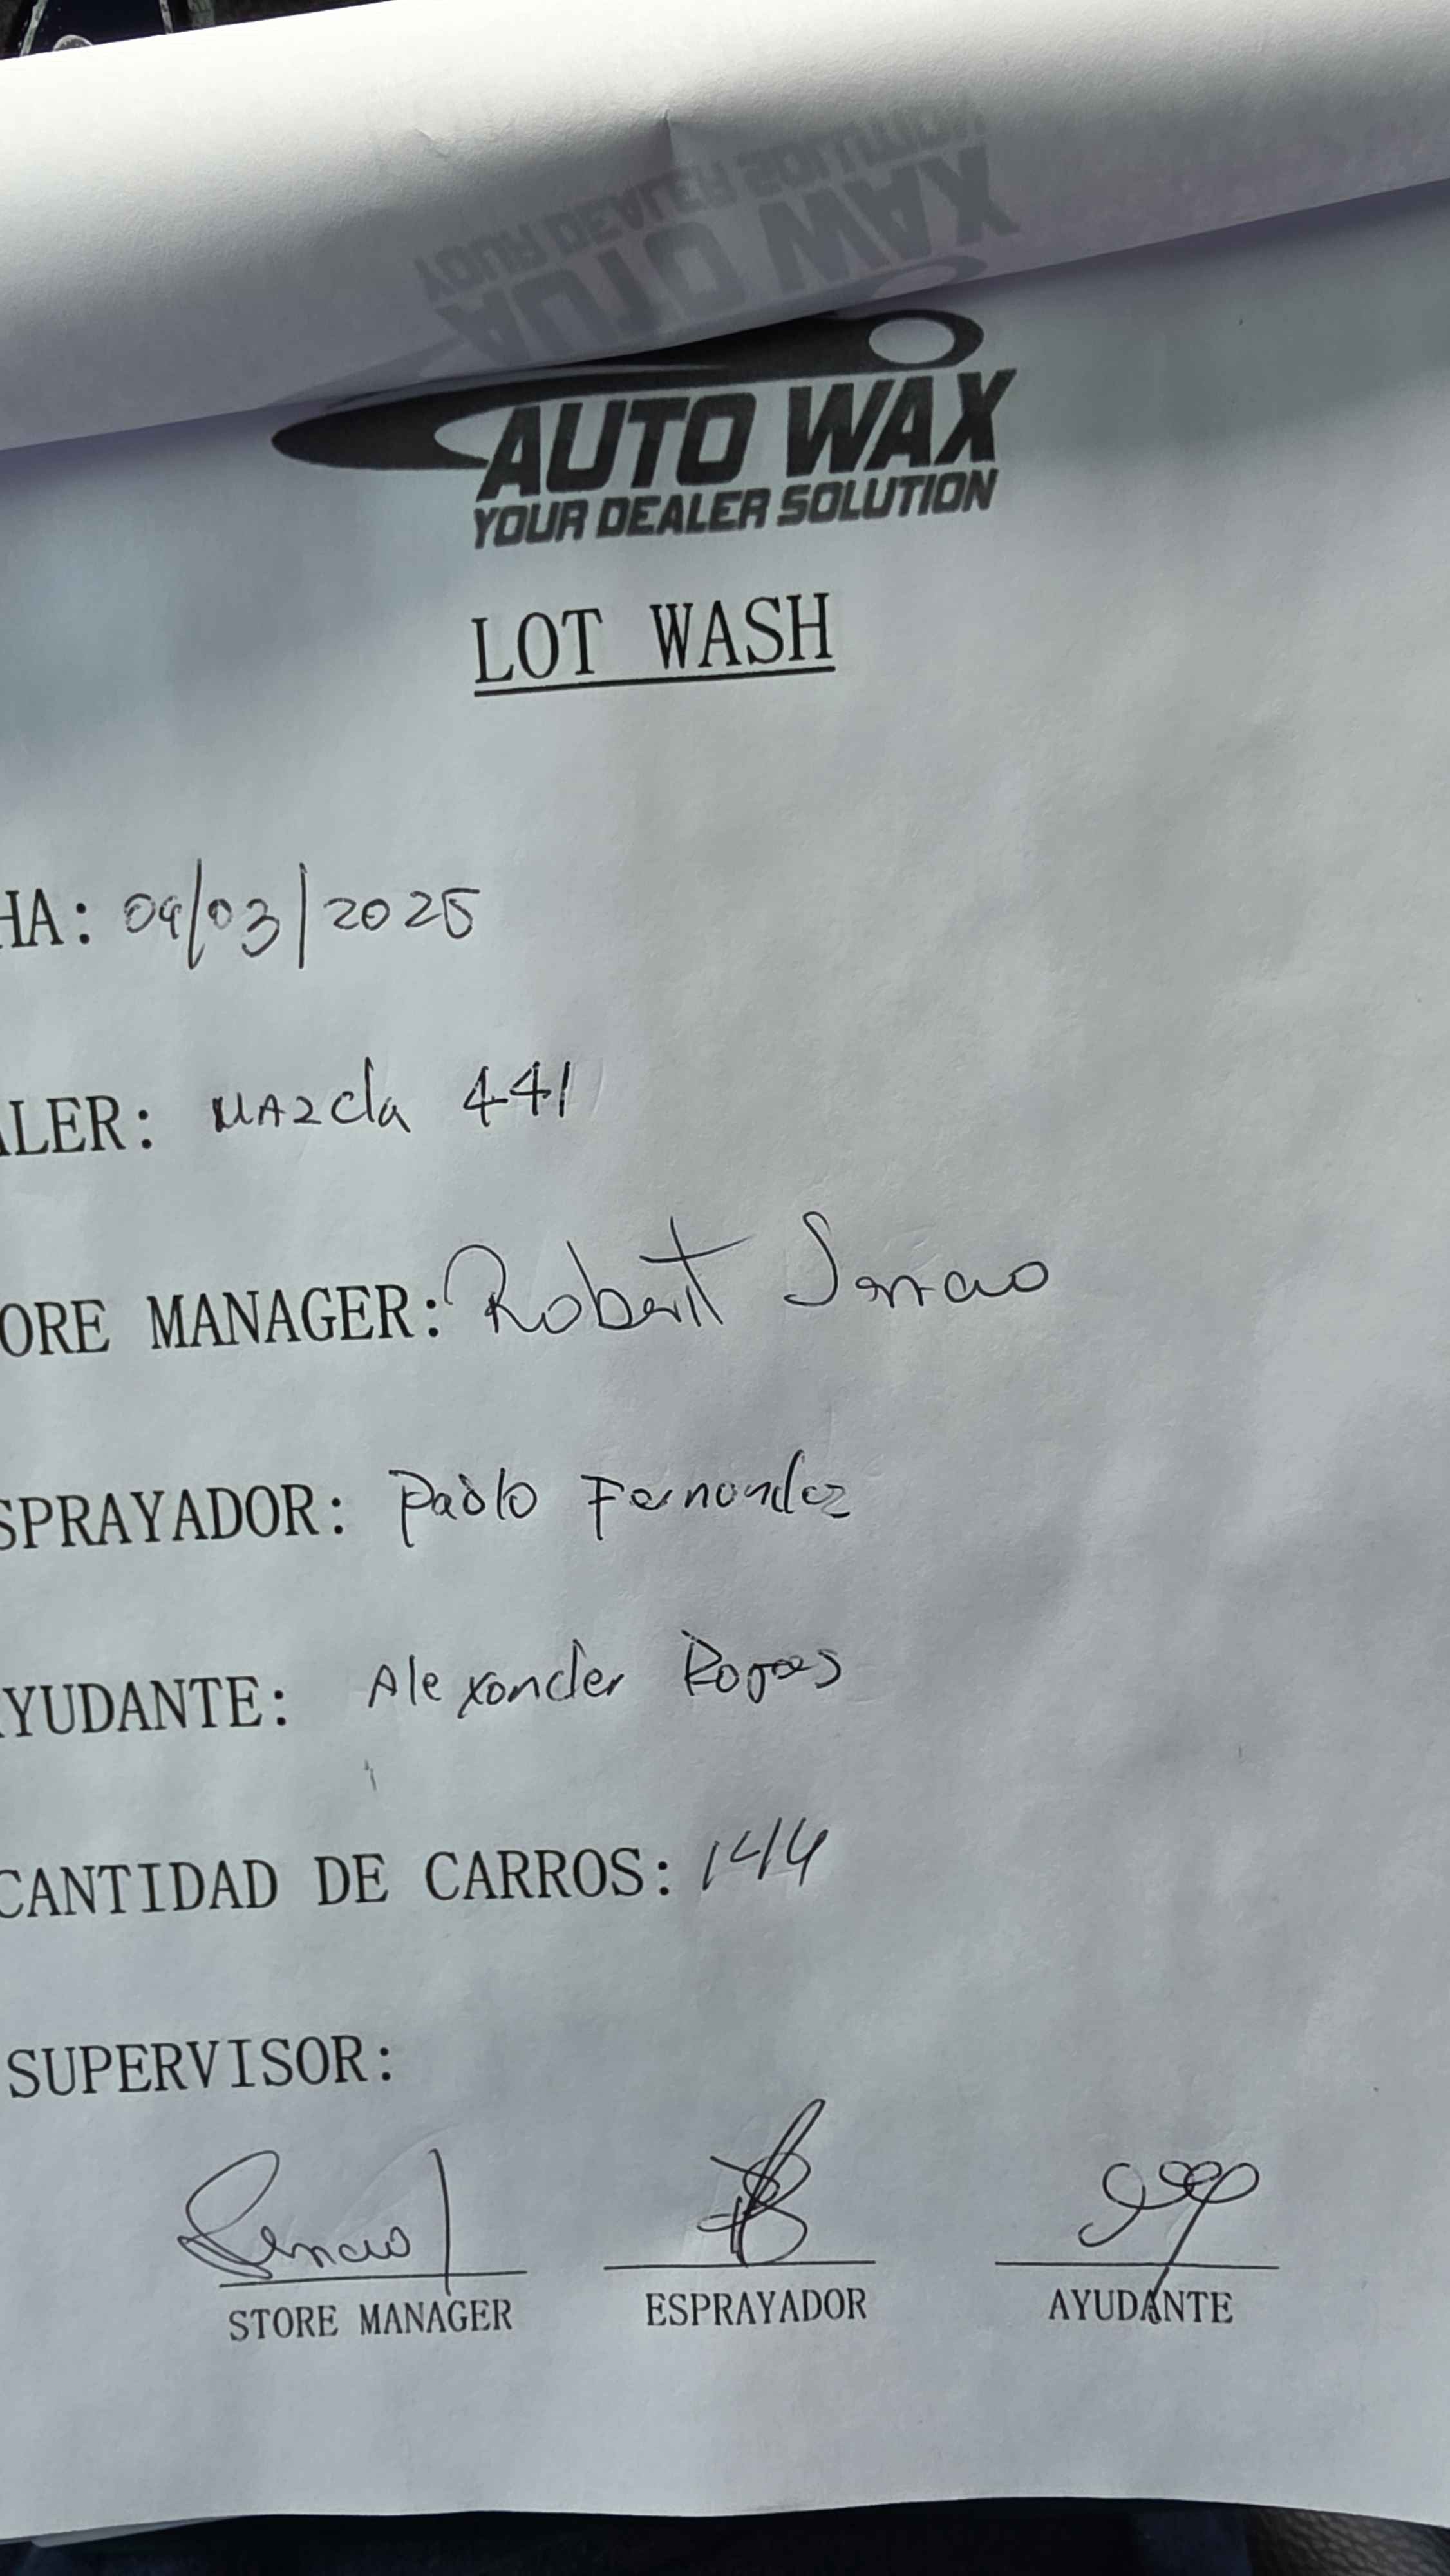 YOUR DEALER SOLUTION
AUTO WAX
AUTO WAX
YOUR DEALER SOLUTION
LOT WASH
HA: 09/03/2025
ALER: MAzda 441
ORE MANAGER: Robert
SPRAYADOR: Pablo Fernandez
YUDANTE: Alexander Rojas
CANTIDAD DE CARROS: 144
SUPERVISOR:
STORE MANAGER ESPRAYADOR AYUDANTE